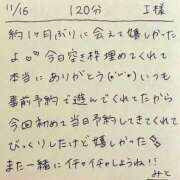 11/16 120分 I様
約1ヶ月ぶりに会えて嬉しかった
よ♡♡今日空き枠埋めてくれて
本当にありがとう(о´∀`о)いつも
事前予約で遊んでくれてたから
今回初めて当日予約してきてくれて
びっくりしたけど嬉しかった
また一緒にイチャイチャしようね!!
みと